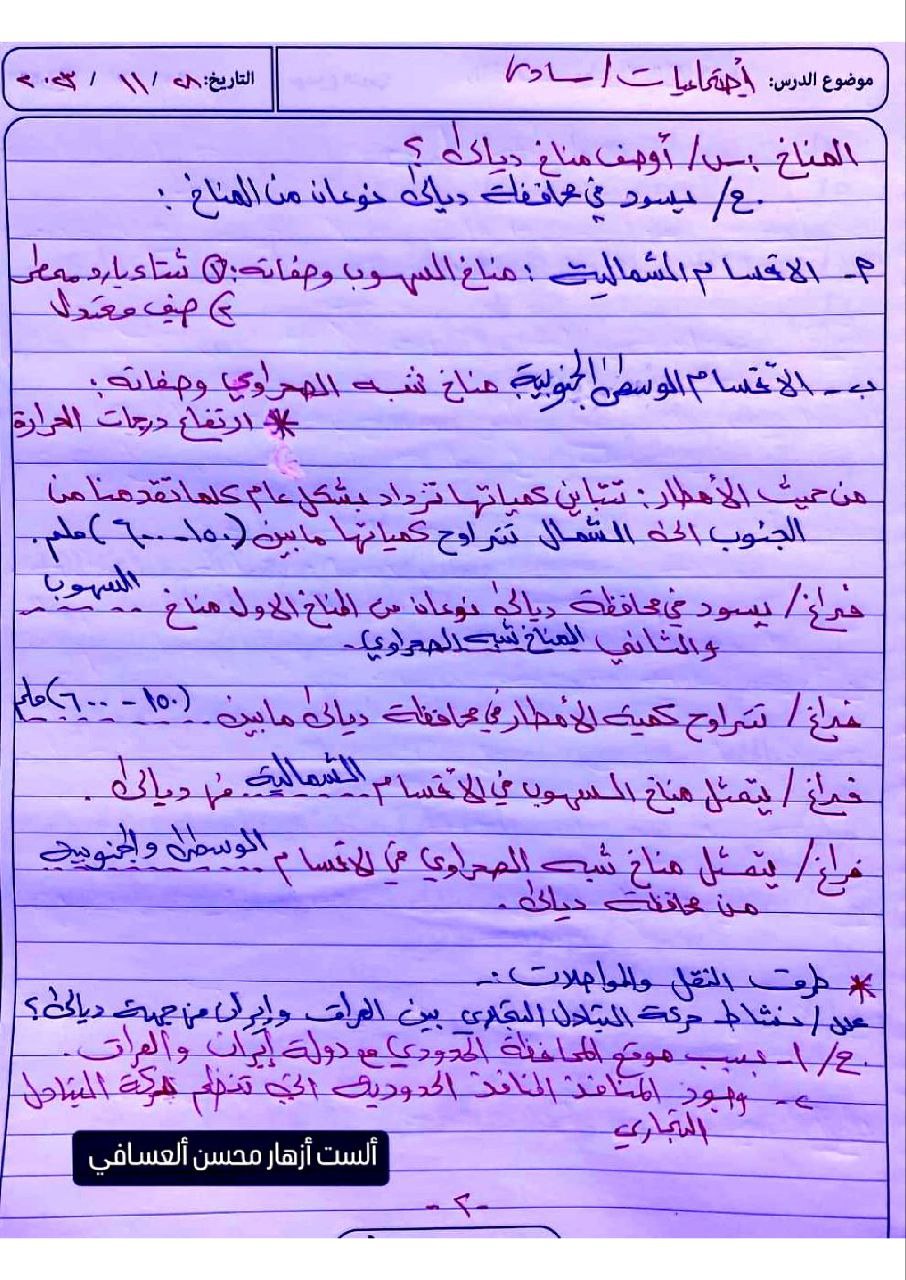 موضوع الدرس: إجتماعيات / سادس
التاريخ: ٢٨ / ١١ / ٢٠٢٣
المناخ : س/ أوصف مناخ ديالى ؟
ج/ يسود في محافظة ديالى نوعان من المناخ :
أ- الاقسام الشمالية : مناخ السهوب وصفاته: ① شتاء بارد ممطر
② صيف معتدل
ب - الأقسام الوسطى الجنوبية مناخ شبه الصحراوي وصفاته :
* ارتفاع درجات الحرارة
من حيث الأمطار : تتباين كمياتها تزداد بشكل عام كلما تقدمنا من
الجنوب الى الشمال تتراوح كمياتها مابين (١٥٠-٦٠٠) ملم .
فراغ / يسود في محافظة ديالى نوعان من المناخ الاول مناخ السهوب
والثاني المناخ شبه الصحراوي.
فراغ / تتراوح كمية الأمطار في محافظة ديالى مابين (١٥٠ - ٦٠٠) ملم
فراغ / يتمثل مناخ السهوب في الأقسام الشمالية من ديالى .
فراغ / يتمثل مناخ شبه الصحراوي في الاقسام الوسطى والجنوبية
من محافظة ديالى .
* طرق النقل والمواصلات :-
علل / نشاط حركة التبادل التجاري بين العراق وإيران من جهة ديالى ؟
ج/ ١- بسبب موقع المحافظة الحدودي مع دولة إيران والعراق .
٢- وجود المنافذ المنافذ الحدودية التي تنظم حركة التبادل
التجاري
ألست أزهار محسن ألعسافي
-٢-